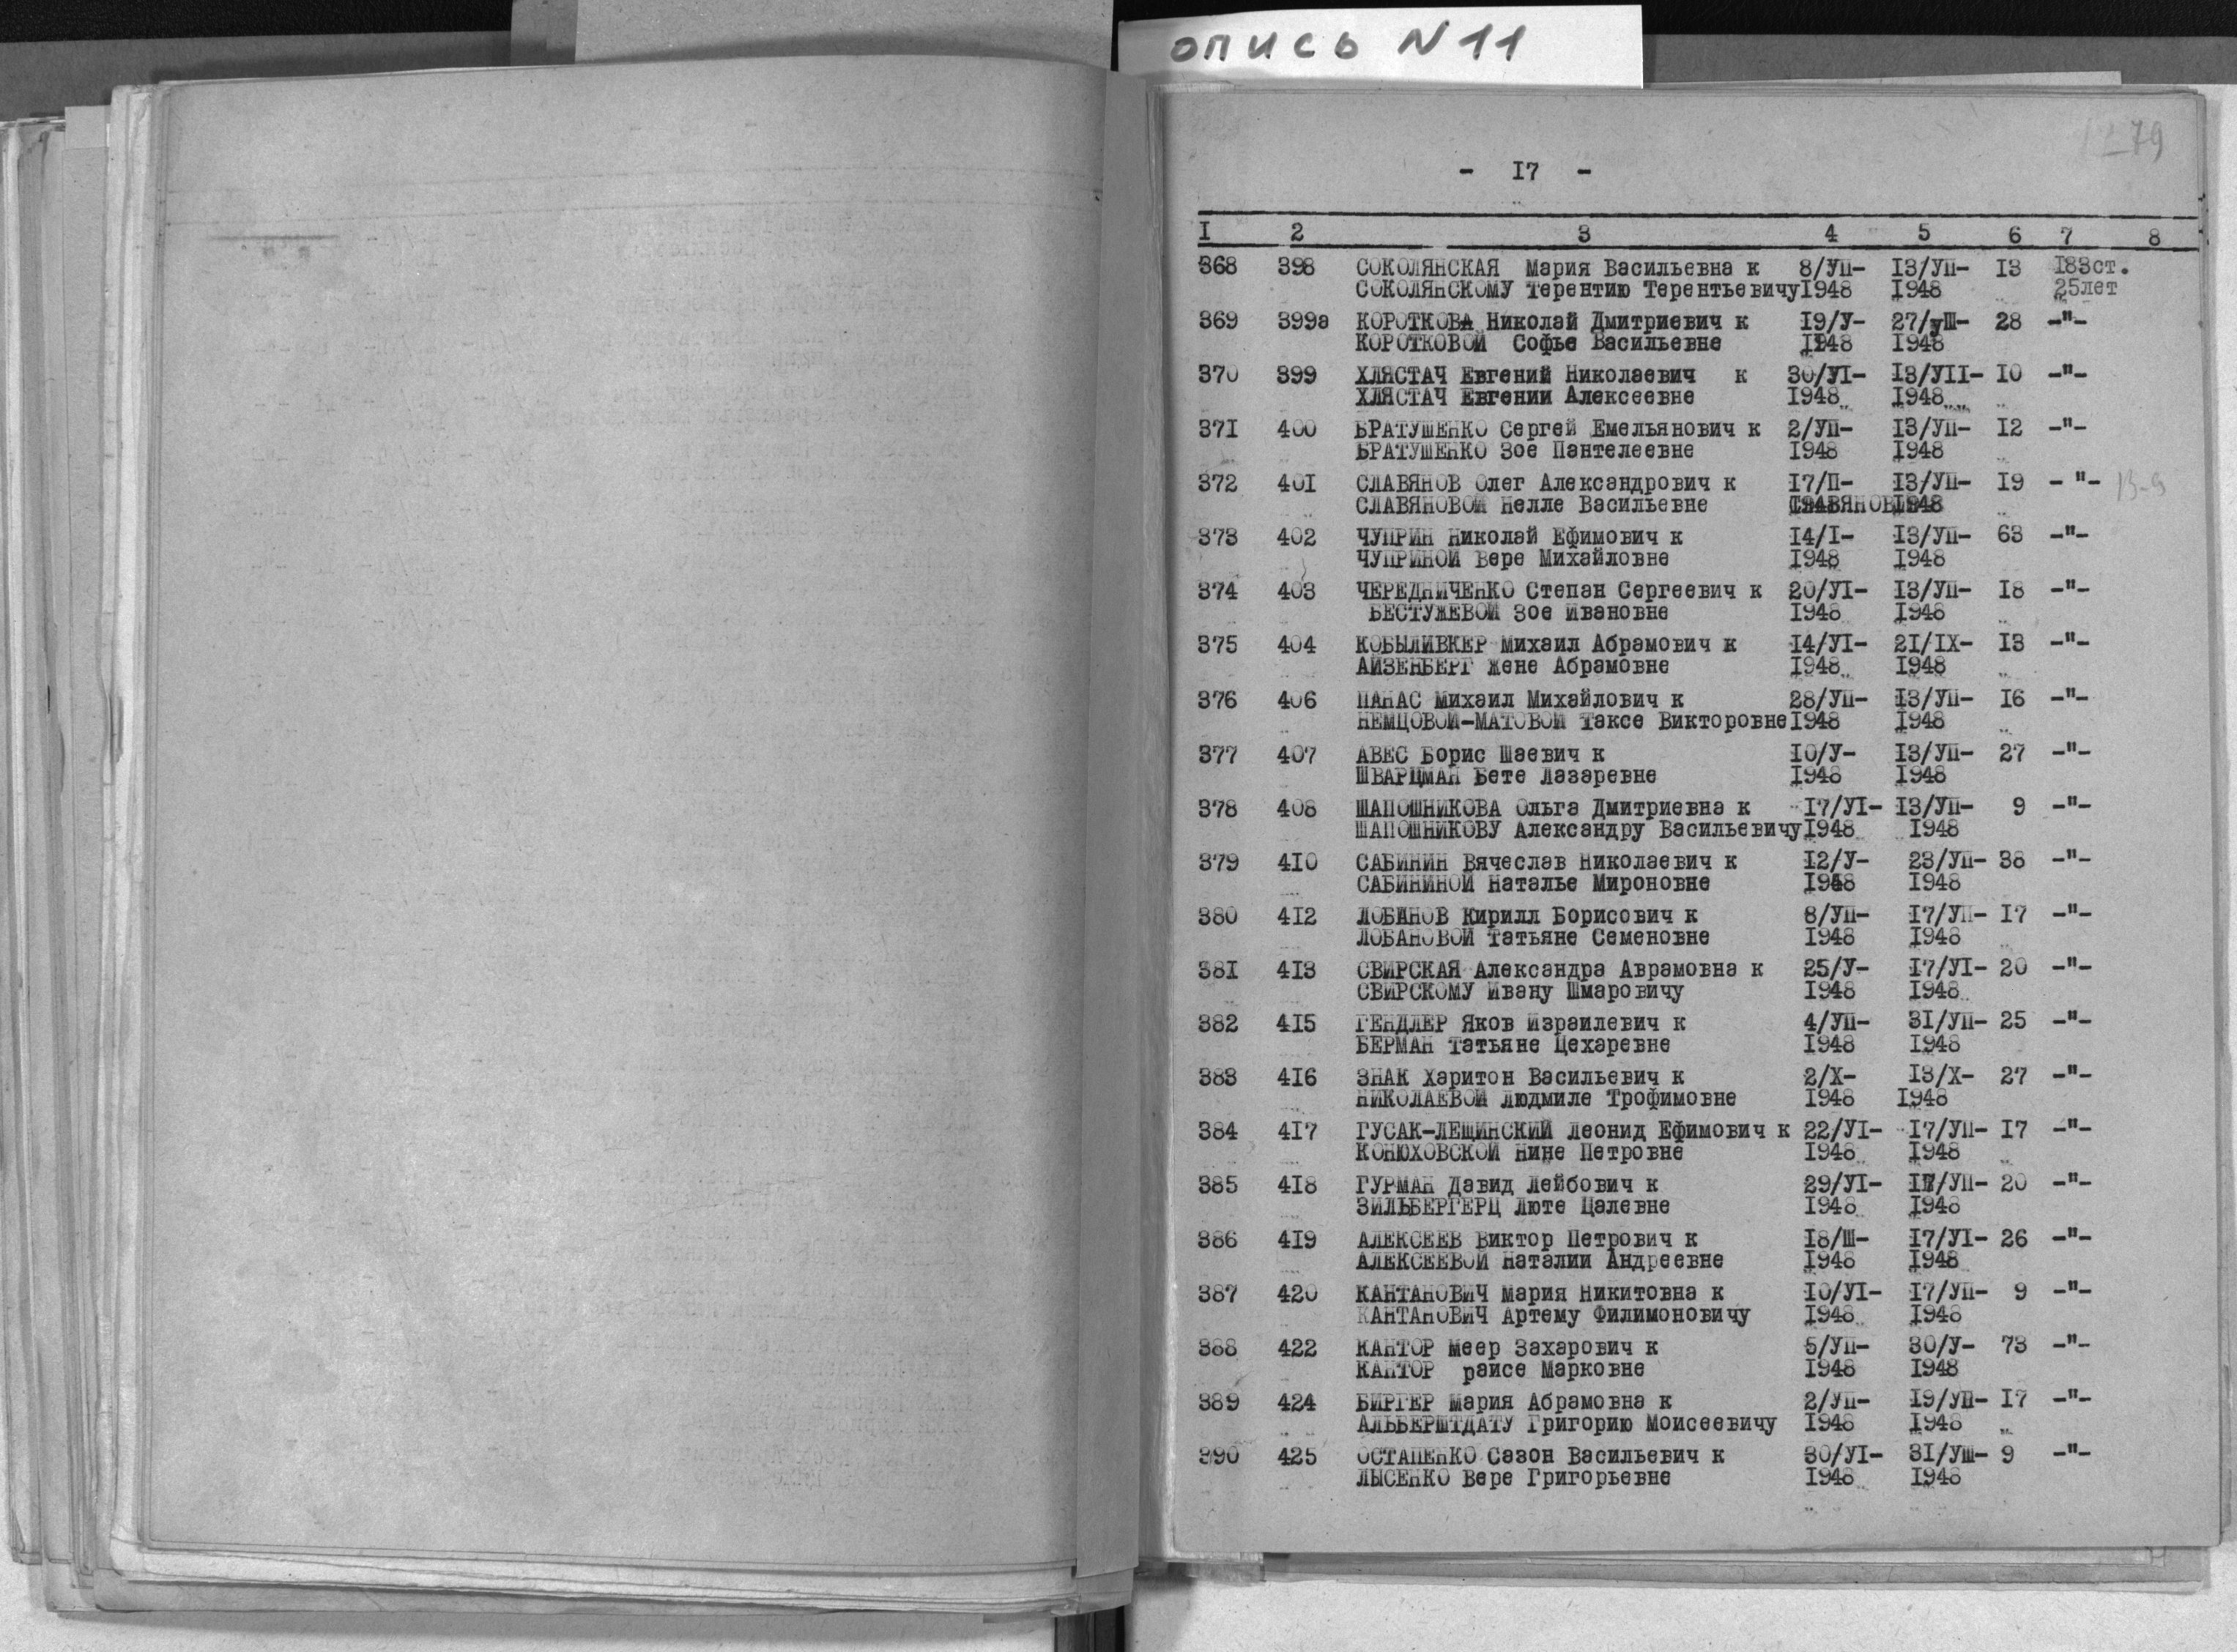 опись N 11
79
- I7 -
I 2 3 4 5 6 7 8
368 398 СОКОЛЯНСКАЯ Мария Васильевна к 8/УП- I3/УП- I3 I83ст.
СОКОЛЯНСКОМУ Терентию Терентьевичу I948 I948 25лет
369 399а КОРОТКОВА Николай Дмитриевич к I9/У- 27/УШ- 28 -"-
КОРОТКОВОЙ Софье Васильевне I948 I948
370 399 ХЛЯСТАЧ Евгений Николаевич к 30/УI- I3/УII- I0 -"-
ХЛЯСТАЧ Евгении Алексеевне I948 I948
37I 400 БРАТУШЕНКО Сергей Емельянович к 2/УП- I3/УП- I2 -"-
БРАТУШЕНКО Зое Пантелеевне I948 I948
372 40I СЛАВЯНОВ Олег Александрович к I7/П- I3/УП- I9 - "-
СЛАВЯНОВОЙ Нелле Васильевне I948 I948
373 402 ЧУПРИН Николай Ефимович к I4/I- I3/УП- 63 -"-
ЧУПРИНОЙ Вере Михайловне I948 I948
374 403 ЧЕРЕДНИЧЕНКО Степан Сергеевич к 20/УI- I3/УП- I8 -"-
БЕСТУЖЕВОЙ Зое Ивановне I948 I948
375 404 КОБЫЛИВКЕР Михаил Абрамович к I4/УI- 2I/IX- I3 -"-
АЙЗЕНБЕРГ Жене Абрамовне I948 I948
376 406 ПАНАС Михаил Михайлович к 28/УП- I3/УП- I6 -"-
НЕМЦОВОЙ-МАТОВОЙ Таксе Викторовне I948 I948
377 407 АВЕС Борис Шаевич к I0/У- I3/УП- 27 -"-
ШВАРЦМАН Бете Лазаревне I948 I948
378 408 ШАПОШНИКОВА Ольга Дмитриевна к I7/УI- I3/УП- 9 -"-
ШАПОШНИКОВУ Александру Васильевичу I948 I948
379 4I0 САБИНИН Вячеслав Николаевич к I2/У- 23/УП- 38 -"-
САБИНИНОЙ Наталье Мироновне I948 I948
380 4I2 ЛОБАНОВ Кирилл Борисович к 8/УП- I7/УП- I7 -"-
ЛОБАНОВОЙ Татьяне Семеновне I948 I948
38I 4I3 СВИРСКАЯ Александра Аврамовна к 25/У- I7/УI- 20 -"-
СВИРСКОМУ Ивану Шмаровичу I948 I948
382 4I5 ГЕНДЛЕР Яков Израилевич к 4/УП- 3I/УП- 25 -"-
БЕРМАН Татьяне Цехаревне I948 I948
383 4I6 ЗНАК Харитон Васильевич к 2/X- I3/X- 27 -"-
НИКОЛАЕВОЙ Людмиле Трофимовне I948 I948
384 4I7 ГУСАК-ЛЕЩИНСКИЙ Леонид Ефимович к 22/УI- I7/УП- I7 -"-
КОНЮХОВСКОЙ Нине Петровне I948 I948
385 4I8 ГУРМАН Давид Лейбович к 29/УI- I7/УП- 20 -"-
ЗИЛЬБЕРГЕРЦ Люте Цалевне I948 I948
386 4I9 АЛЕКСЕЕВ Виктор Петрович к I8/Ш- I7/УI- 26 -"-
АЛЕКСЕЕВОЙ Наталии Андреевне I948 I948
387 420 КАНТАНОВИЧ Мария Никитовна к I0/УI- I7/УП- 9 -"-
КАНТАНОВИЧ Артему Филимоновичу I948 I948
388 422 КАНТОР Меер Захарович к 5/УП- 30/У- 73 -"-
КАНТОР раисе Марковне I948 I948
389 424 БИРГЕР Мария Абрамовна к 2/УП- I9/УП- I7 -"-
АЛЬБЕРШТДАТУ Григорию Моисеевичу I948 I948
390 425 ОСТАПЕНКО Сазон Васильевич к 30/УI- 3I/УШ- 9 -"-
ЛЫСЕНКО Вере Григорьевне I948 I948